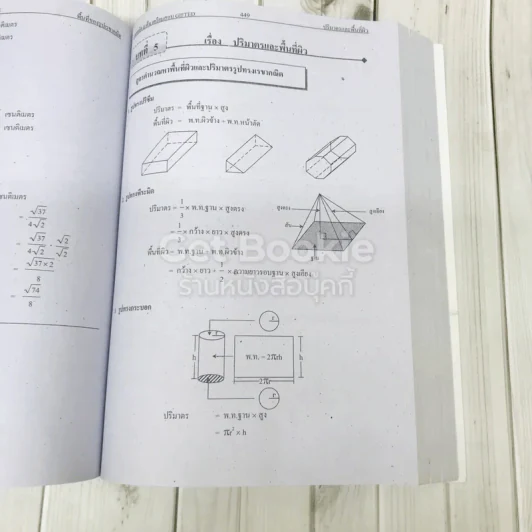 พื้นที่รูปเรขาคณิต
เซนติเมตร
เซนติเมตร
= √37
4√2
= √37 . √2
4√2 √2
= √37 × 2
8
= √74
8
A49
ปริมาตรและพื้นที่ผิว
บทที่ 5 เรื่อง ปริมาตรและพื้นที่ผิว
สูตรคำนวณหาพื้นที่ผิวและปริมาตรรูปทรงเรขาคณิต
1. รูปทรงปริซึม
ปริมาตร = พื้นที่ฐาน × สูง
พื้นที่ผิว = พ.ท.ผิวข้าง + พ.ท.หน้าตัด
2. รูปทรงพีระมิด
ปริมาตร = 1/3 × พ.ท.ฐาน × สูงตรง
= 1/3 × กว้าง × ยาว × สูงตรง
พื้นที่ผิว = พ.ท.ฐาน + พ.ท.ผิวข้าง
= กว้าง × ยาว + 1/2 × ความยาวรอบฐาน × สูงเอียง
สูงตรง
สูงเอียง
สัน
ฐาน
Got Bookie
ร้านหนังสือบุคกี้
3. รูปทรงกระบอก
r
h
พ.ท. = 2πrh
h
2πr
r
ปริมาตร = พ.ท.ฐาน × สูง
= πr² × h